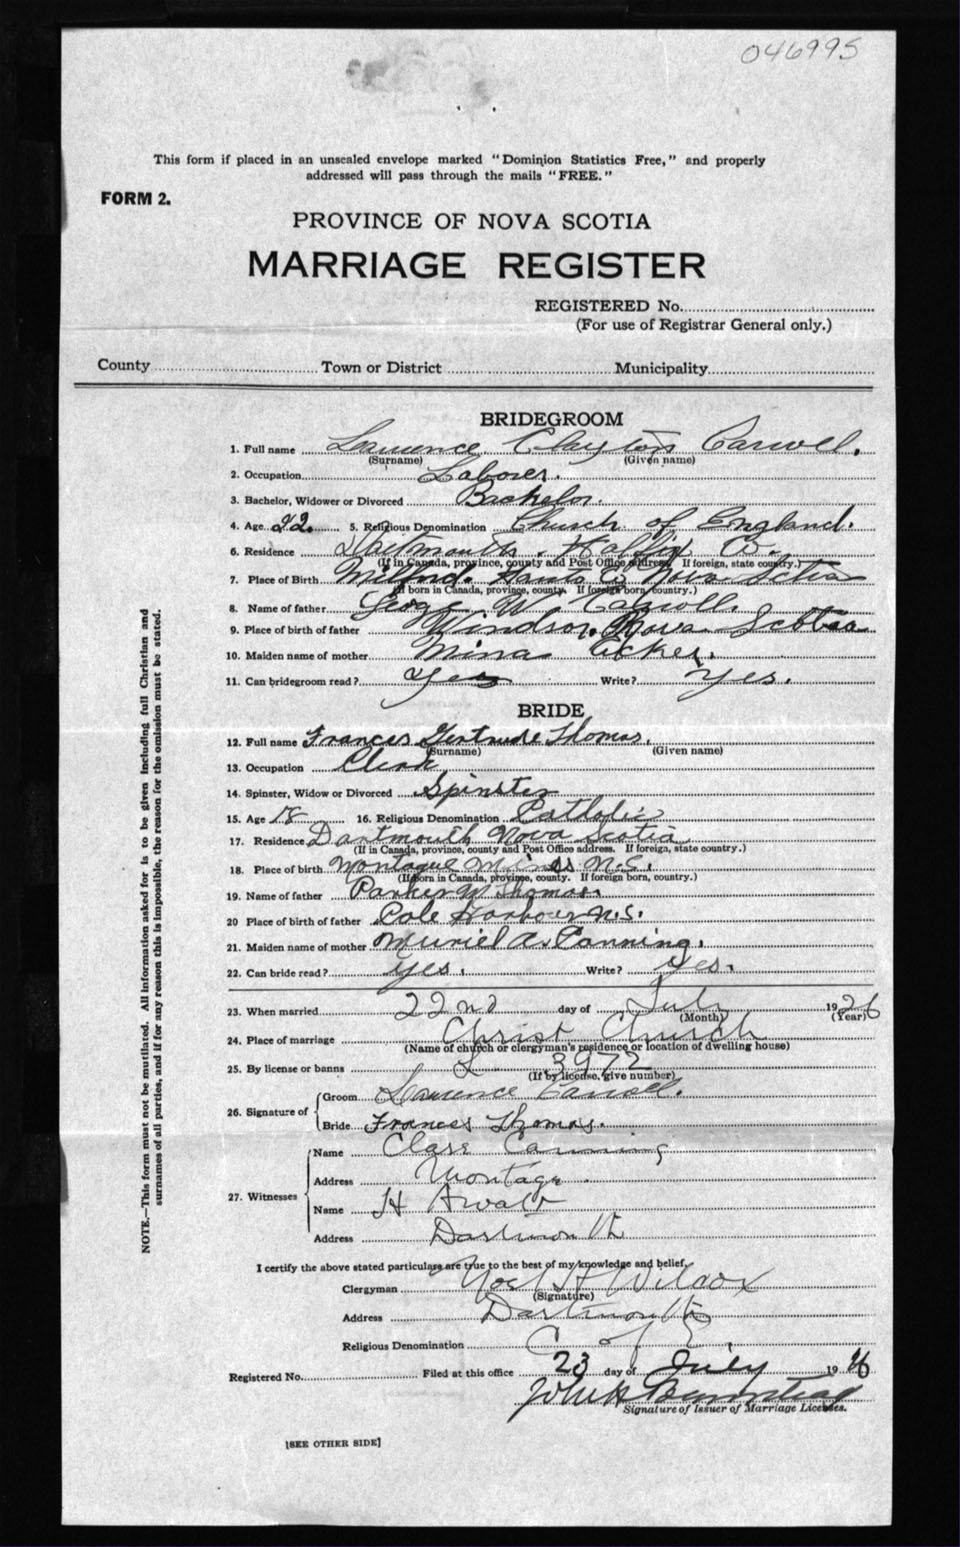 046995
This form if placed in an unsealed envelope marked "Dominion Statistics Free," and properly
addressed will pass through the mails "FREE."
FORM 2.
PROVINCE OF NOVA SCOTIA
MARRIAGE REGISTER
REGISTERED No.
(For use of Registrar General only.)
County Town or District Municipality
BRIDEGROOM
1. Full name Laurence Clayton Carroll.
(Surname) (Given name)
2. Occupation Laborer.
3. Bachelor, Widower or Divorced Bachelor.
4. Age 22. 5. Religious Denomination Church of England.
6. Residence Dartmouth. Halifax Co.
(If in Canada, province, county and Post Office address If foreign, state country.)
7. Place of Birth Milford. Hants Co Nova Scotia
(If born in Canada, province, county. If foreign born, country.)
8. Name of father George W Carroll
9. Place of birth of father Windsor. Nova Scotia
10. Maiden name of mother Mina Acker.
11. Can bridegroom read? Yes Write? Yes.
BRIDE
12. Full name Frances Gertrude Thomas.
(Surname) (Given name)
13. Occupation Clerk
14. Spinster, Widow or Divorced Spinster
15. Age 18 16. Religious Denomination Catholic
17. Residence Dartmouth Nova Scotia
(If in Canada, province, county and Post Office address. If foreign, state country.)
18. Place of birth Montague Mines N.S.
(If Born in Canada, province, county. If foreign born, country.)
19. Name of father Parker W Thomas.
20 Place of birth of father Cole Harbour N.S.
21. Maiden name of mother Muriel A. Canning.
22. Can bride read? Yes. Write? Yes.
23. When married 22nd day of July 1926
(Month) (Year)
24. Place of marriage Christ Church
(Name of church or clergyman's residence or location of dwelling house)
25. By license or banns L 3972
(If by license, give number)
26. Signature of Groom Laurence Carroll.
Bride Frances Thomas.
27. Witnesses Name Clare Canning
Address Montague
Name H Awalt
Address Dartmouth
I certify the above stated particulars are true to the best of my knowledge and belief.
Clergyman Noel H Wilcox
(Signature)
Address Dartmouth
Religious Denomination C of E.
Registered No. Filed at this office 23 day of July 1926
John H
Signature of Issuer of Marriage Licenses.
[SEE OTHER SIDE]
NOTE.—This form must not be mutilated. All information asked for is to be given including full Christian and
surnames of all parties, and if for any reason this is impossible, the reason for the omission must be stated.